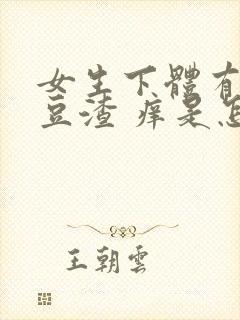 女生下體有
豆渣 痒是怎
王朝雲